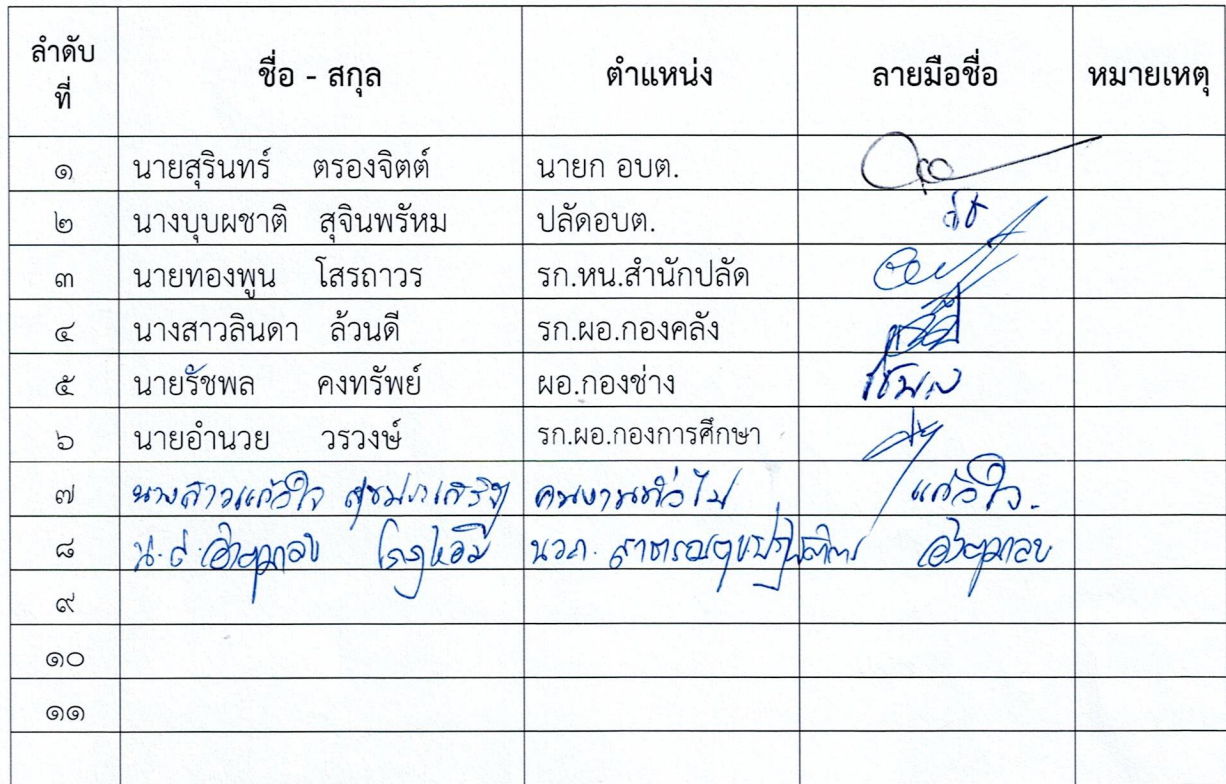 ลำดับที่ ชื่อ - สกุล ตำแหน่ง ลายมือชื่อ หมายเหตุ
๑ นายสุรินทร์ ตรองจิตต์ นายก อบต.
๒ นางบุบผชาติ สุจินพรัหม ปลัดอบต.
๓ นายทองพูน โสรถาวร รก.หน.สำนักปลัด
๔ นางสาวลินดา ล้วนดี รก.ผอ.กองคลัง
๕ นายรัชพล คงทรัพย์ ผอ.กองช่าง รัชพล
๖ นายอำนวย วรวงษ์ รก.ผอ.กองการศึกษา
๗ นางสาวแก้วใจ คนงานทั่วไป แก้วใจ
๘ น.ส. นวก. สาธารณสุขปฏิบัติการ
๙
๑๐
๑๑